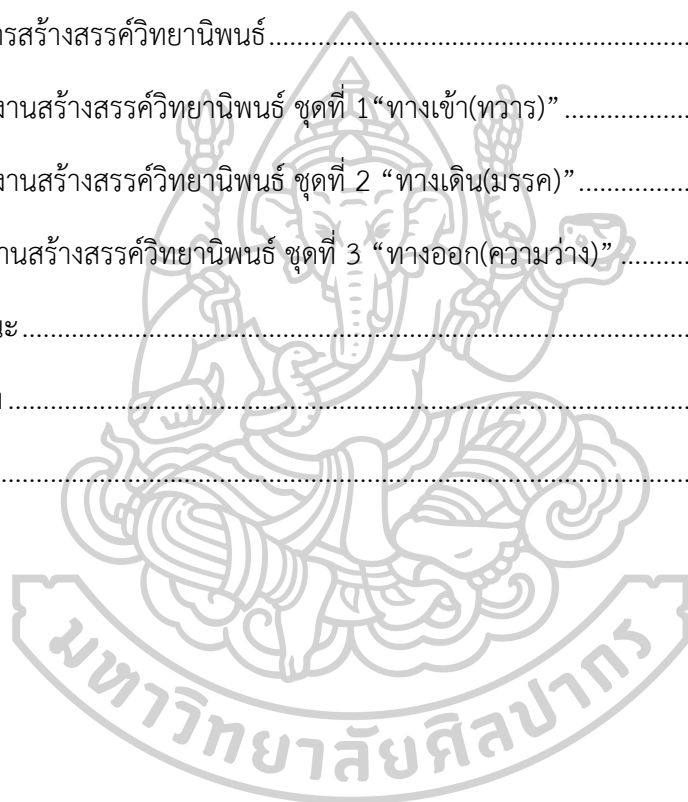 ารสร้างสรรค์วิทยานิพนธ์
งานสร้างสรรค์วิทยานิพนธ์ ชุดที่ 1“ทางเข้า(ทวาร)”
งานสร้างสรรค์วิทยานิพนธ์ ชุดที่ 2 “ทางเดิน(มรรค)”
านสร้างสรรค์วิทยานิพนธ์ ชุดที่ 3 “ทางออก(ความว่าง)”
มหาวิทยาลัยศิลปากร